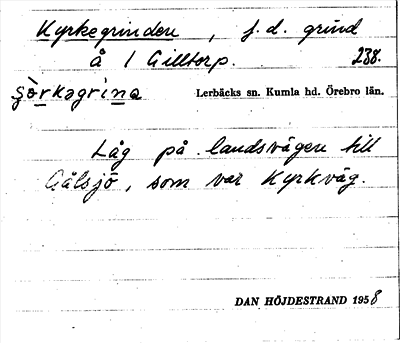 Kyrkegrinden, f.d. grind
å 1 Gilltorp. 238.
şòrkəgrìna Lerbäcks sn. Kumla hd. Örebro län.
Låg på landsvägen till
Gålsjö, som var kyrkväg.
DAN HÖJDESTRAND 1958